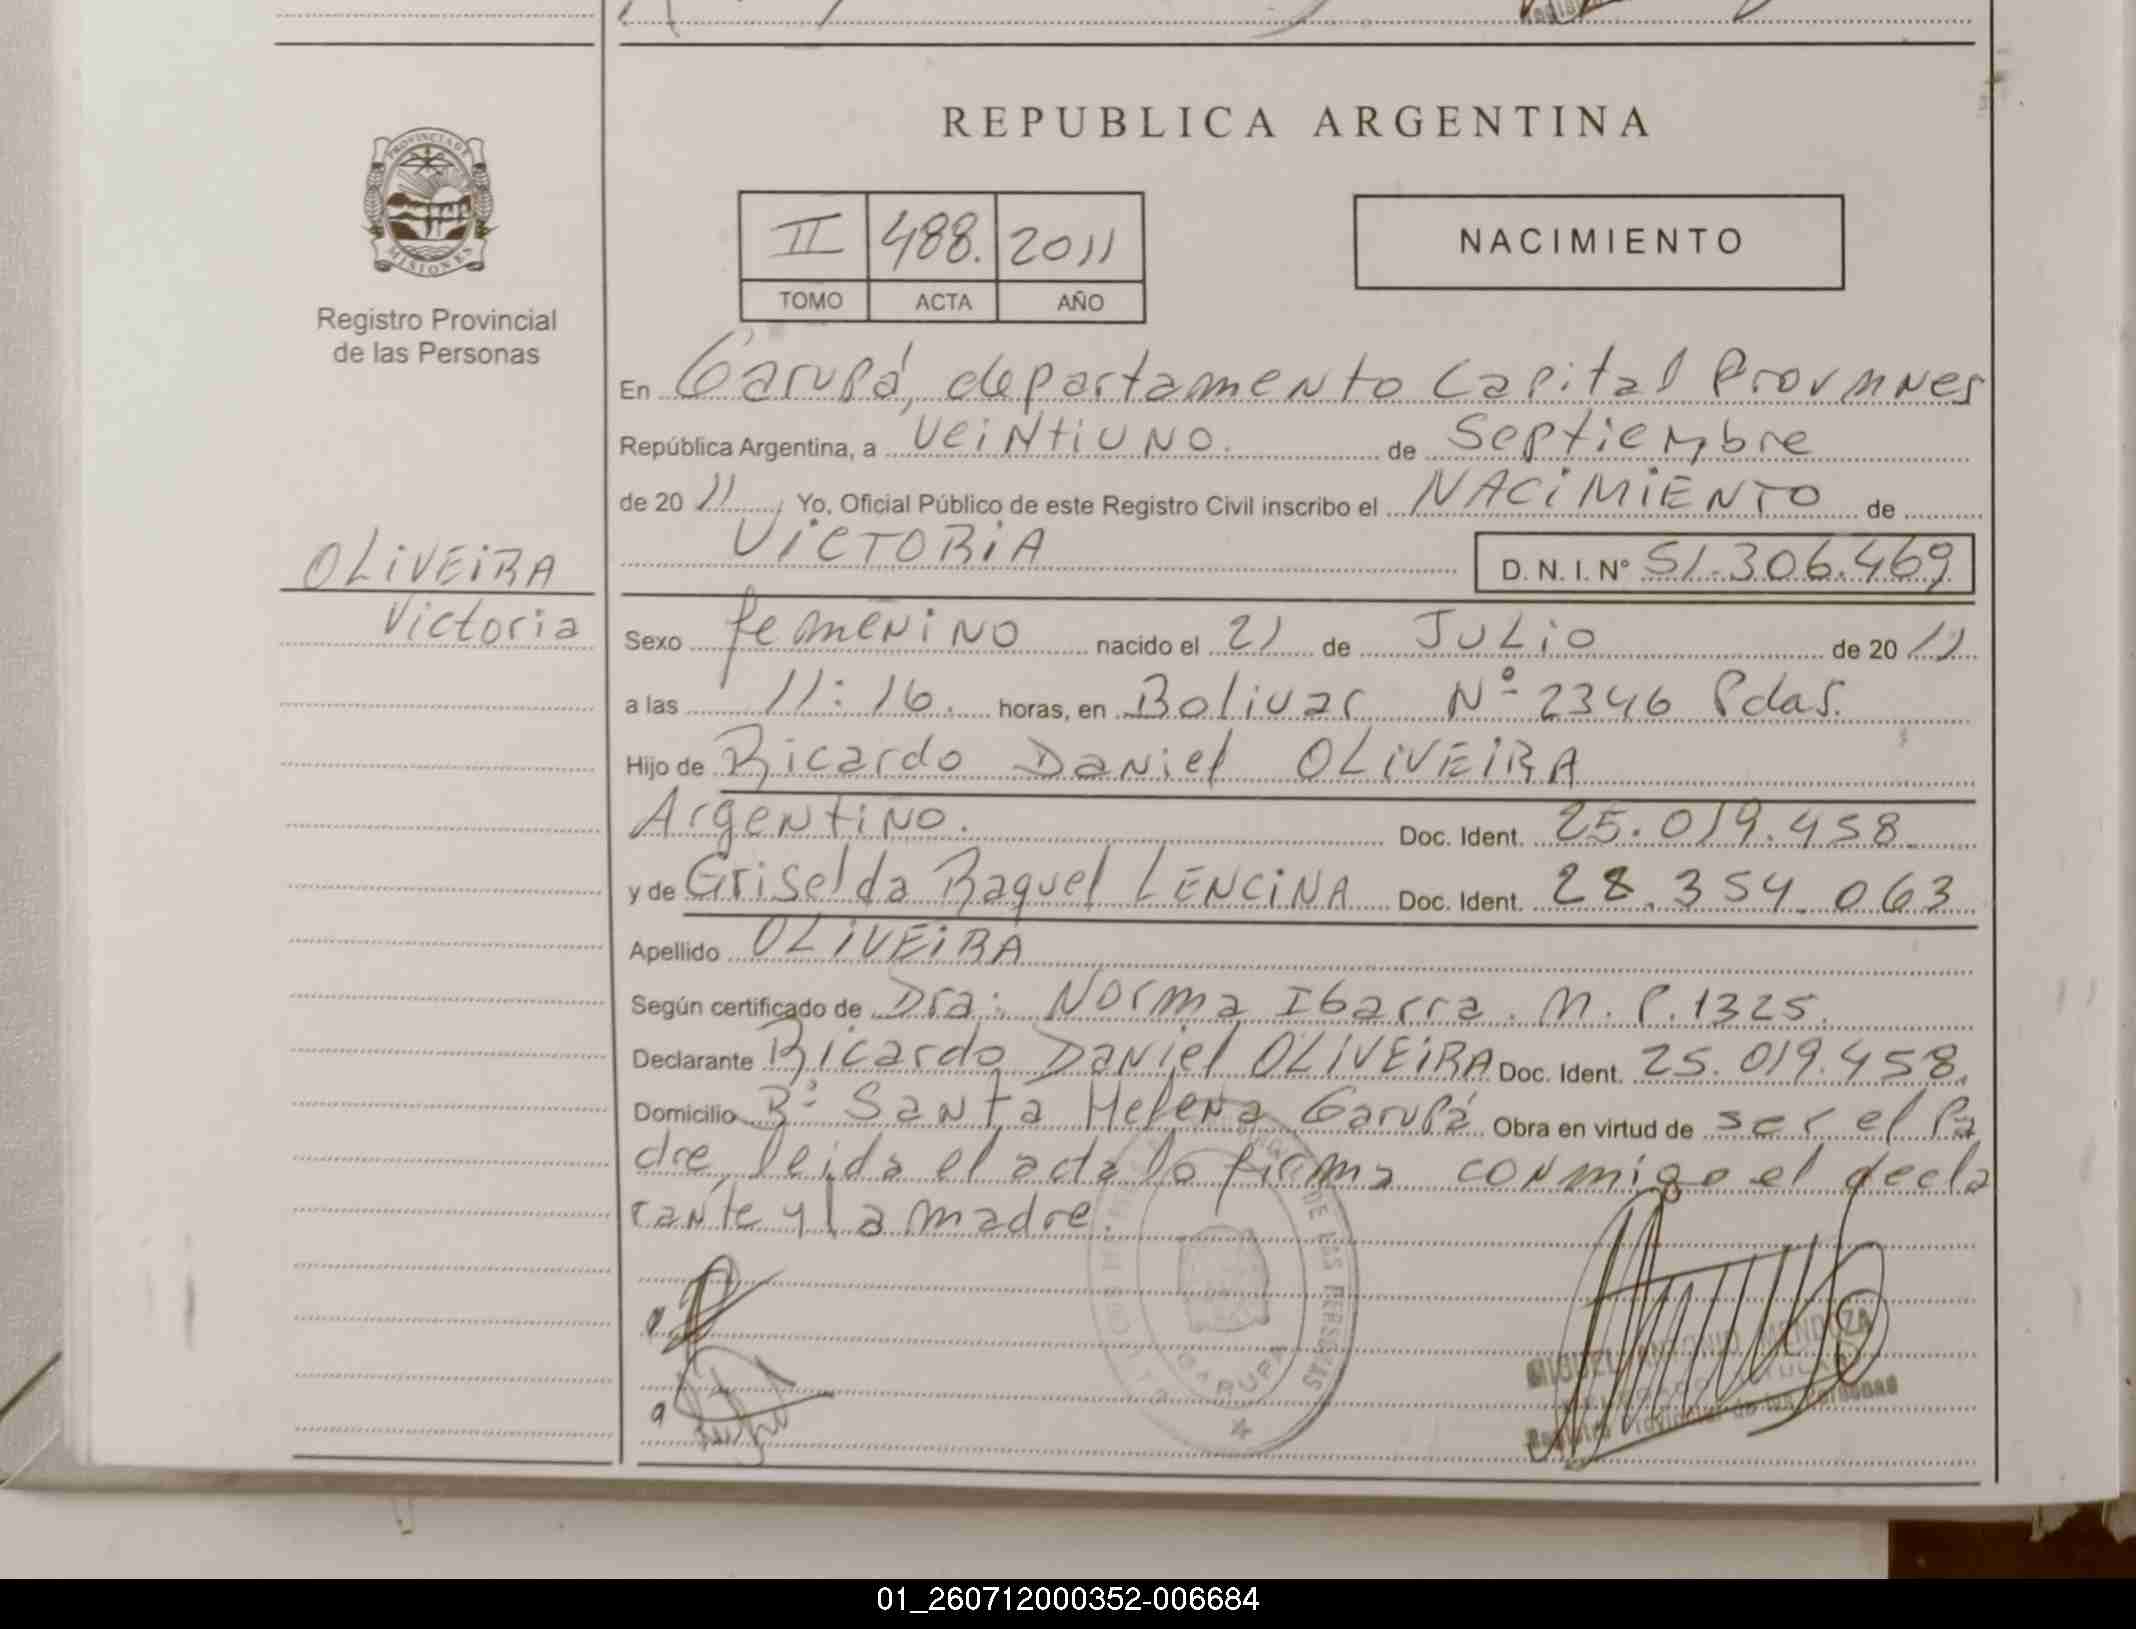 REPUBLICA ARGENTINA
PROVINCIA DE
MISIONES
Registro Provincial
de las Personas
II 488. 2011
TOMO ACTA AÑO
NACIMIENTO
En Garupá, departamento Capital Prov mnes
República Argentina, a veintiuno. de Septiembre
de 20 11 , Yo, Oficial Público de este Registro Civil inscribo el NACIMIENTO de
VICTORIA D. N. I. Nº 51.306.469
OLIVEIRA
Victoria
Sexo femenino nacido el 21 de JULIO de 20 11
a las 11:16. horas, en Bolivar Nº 2346 Pdas.
Hijo de Ricardo Daniel OLIVEIRA
Argentino. Doc. Ident. 25.019.458
y de Griselda Raquel LENCINA Doc. Ident. 28.354.063
Apellido OLIVEIRA
Según certificado de Dra: Norma Ibarra. M.P. 1325.
Declarante Ricardo Daniel OLIVEIRA Doc. Ident. 25.019.458.
Domicilio Bº Santa Helena Garupá Obra en virtud de ser el Pa
dre, leida el acta lo firma conmigo el decla
rante y la madre.
DE LAS PERSONAS
GARUPA
MIGUEL ANTONIO MENDOZA
Registro Provincial de las Personas
01_260712000352-006684